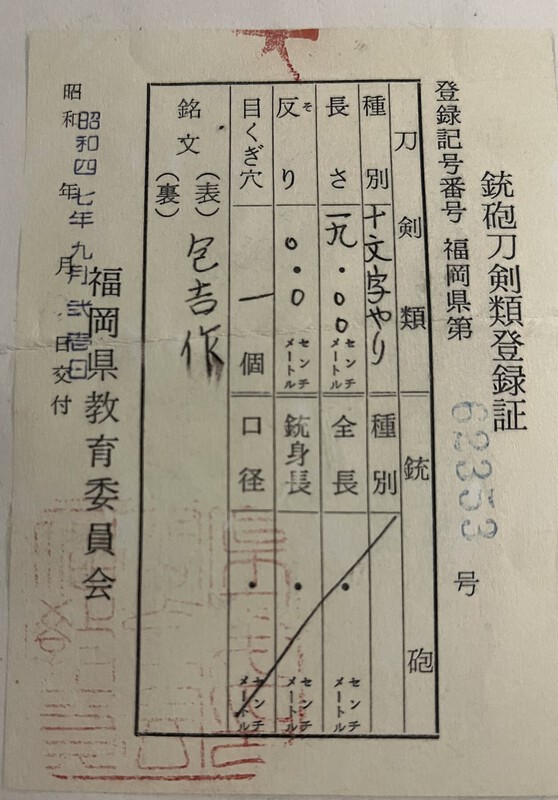 銃砲刀剣類登録証
登録記号番号 福岡県第 62353 号
刀剣類 銃砲
種別 十文字やり 種別
長さ 一九・〇〇 センチメートル 全長 ・ センチメートル
反り そ 〇・〇 センチメートル 銃身長 ・ センチメートル
目くぎ穴 一 個 口径 ・ センチメートル
銘文 (表) 包吉作
(裏)
福岡県教育委員会
昭和 年 月 日交付
昭和四七年九月弐壱日